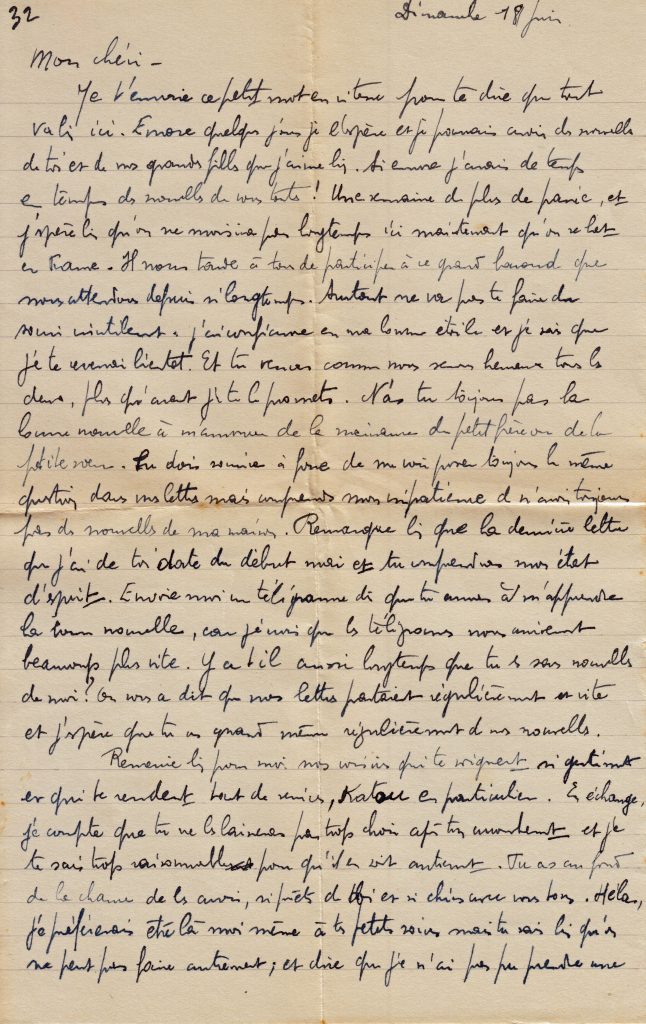 32
Dimanche 18 juin
Mon chéri -
Je t'envoie ce petit mot en vitesse pour te dire que tout
va bi ici. Encore quelques jours je l'espère et je pourrais avoir des nouvelles
de toi et de nos grandes filles que j'aime bi. Si encore j'avais de temps
en temps des nouvelles de vous toutes ! Une semaine de plus de passée, et
j'espère bi qu'on ne moisira pas longtemps ici maintenant qu'on se bat
en France - Il nous tarde à tous de participer à ce grand baroud que
nous attendons depuis si longtemps. Surtout ne va pas te faire du
souci inutilement - j'ai confiance en ma bonne étoile et je sais que
je te reverrai bientôt. Et tu verras comme nous serons heureux tous les
deux, plus qu'avant je te le promets. N'as tu toujours pas la
bonne nouvelle à m'annoncer de la naissance du petit frère ou de la
petite soeur. Tu dois sourire à force de me voir poser toujours la même
question dans mes lettres mais comprends mon impatience de n'avoir toujours
pas de nouvelles de ma maison. Remarque bi que la dernière lettre
que j'ai de toi date du début mai et tu comprendras mon état
d'esprit. Envoie moi un télégramme dès que tu auras à m'apprendre
la bonne nouvelle, car je crois que les télégrammes nous arrivent
beaucoup plus vite. Y a t'il aussi longtemps que tu es sans nouvelles
de moi ? On nous a dit que nos lettres partaient régulièrement et vite
et j'espère que tu as quand même régulièrement de nos nouvelles.
Remercie bi pour moi nos voisins qui te soignent si gentiment
et qui te rendent tout de services, Katou en particulier. En échange,
je compte que tu ne les laisseras pas trop choir après ton accouchement et je
te sais trop raisonnable pour qu'il en soit autrement. Tu as au fond
de la chance de les avoir, si près de toi et si chics avec vous tous. Hélas,
je préférerais être là moi même à tes petits soins mais tu sais bi qu'on
ne peut pas faire autrement ; et dire que je n'ai pas pu prendre une